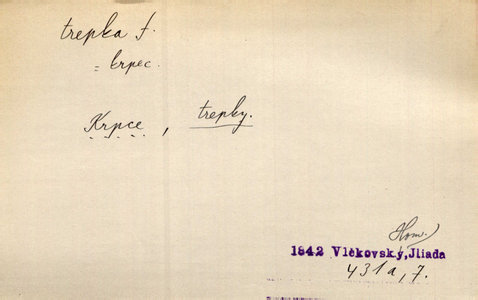 trepka f.
= krpec.
Krpce, trepky.
Hom.
1842 Vlčkovský, Jliada
431a, 7.